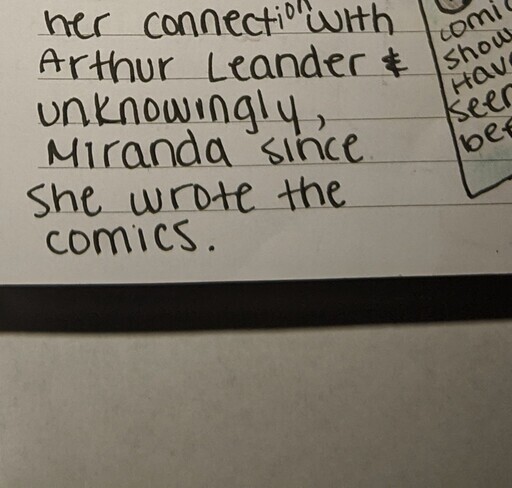 her connection with
Arthur Leander &
unknowingly,
Miranda since
she wrote the
comics.
show
seen